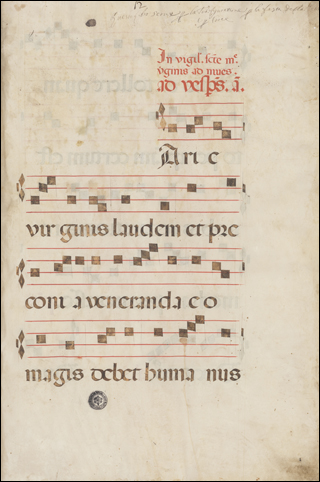 In vigil. scte me
virginis ad mives.
ad vesps. a.
Ari e
vir ginis laudem et pre
coni a veneranda e o
magis debet huma nus